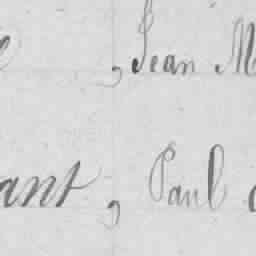 , Jean M
ant, Paul